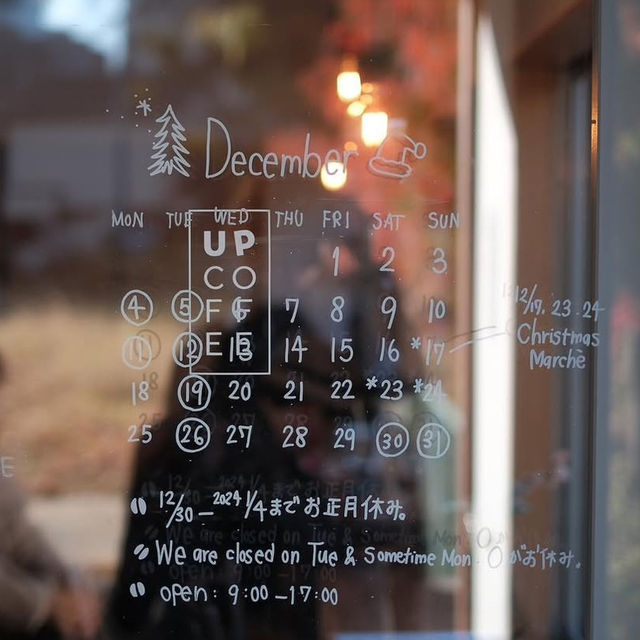 December
MON TUE WED THU FRI SAT SUN
UP
CO
FF
EE
1 2 3
4 5 6 7 8 9 10
11 12 13 14 15 16 *17
18 19 20 21 22 *23 *24
25 26 27 28 29 30 31
12/17. 23. 24
Christmas
Marchē
12/30 — 2024 1/4 まで お正月休み。
We are closed on Tue & Sometime Mon. ○ がお休み.
open: 9:00 — 17:00